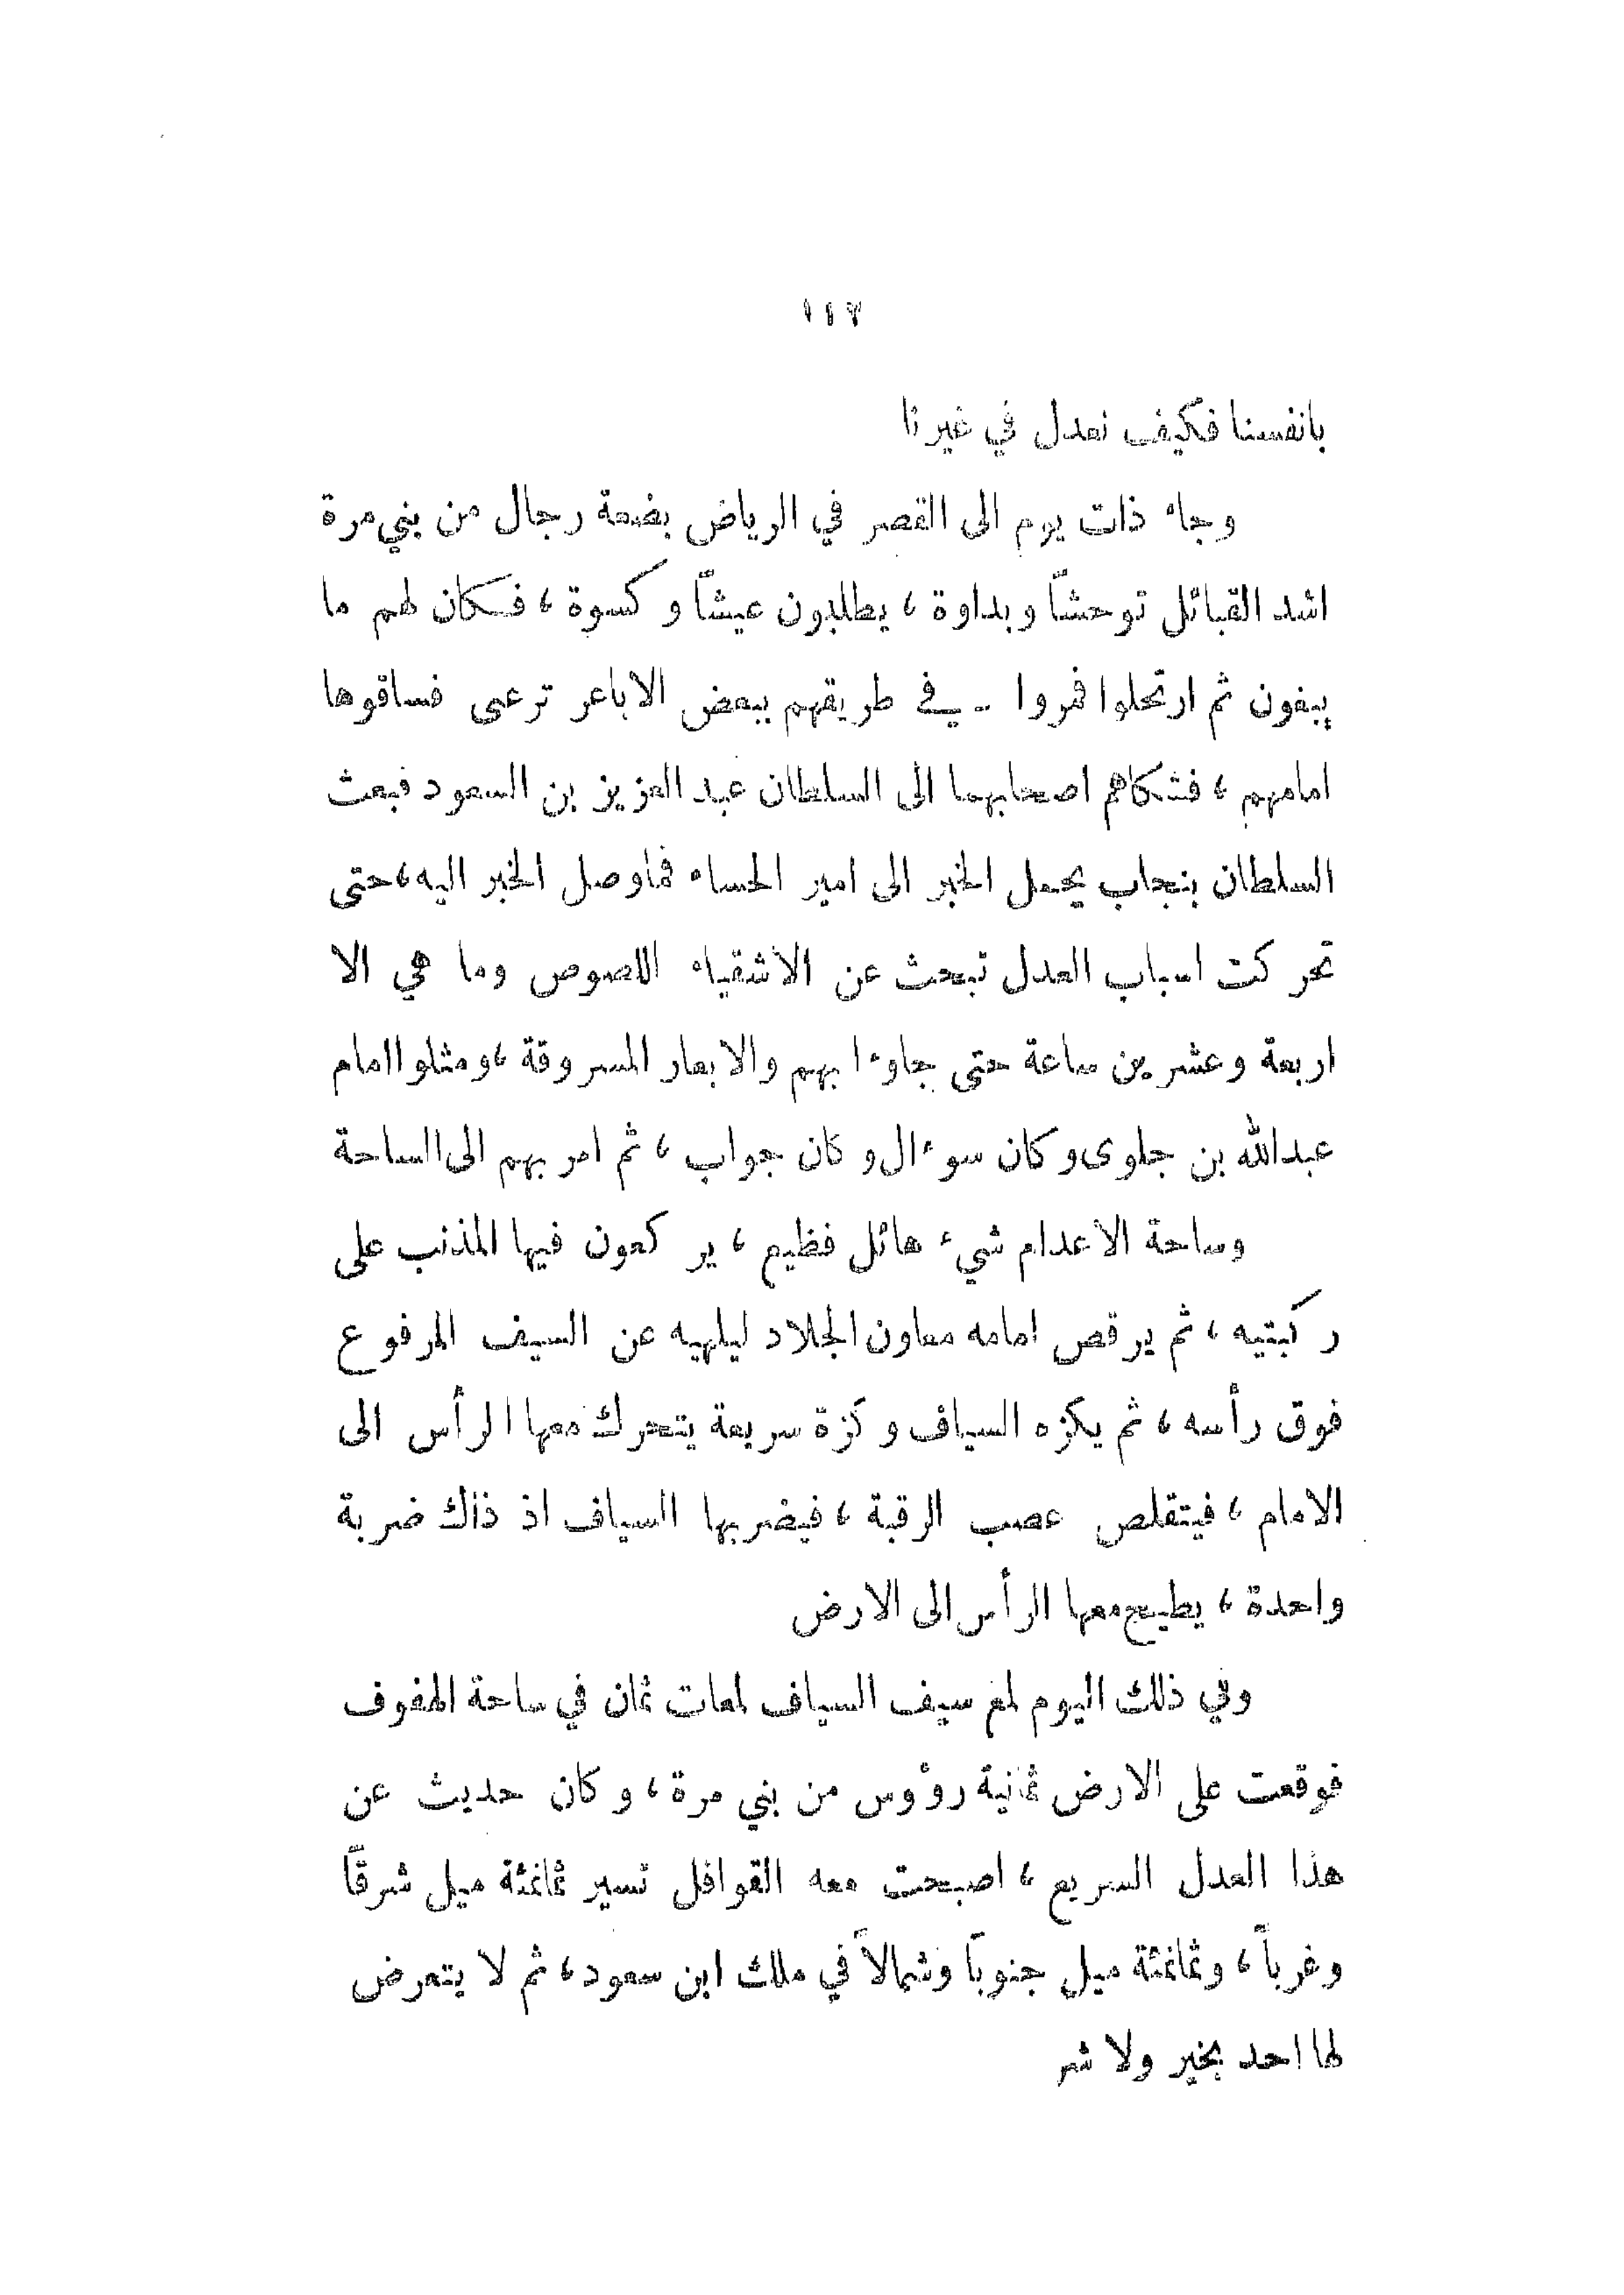 ١١٧
بانفسنا فكيف نعدل في غيرنا
وجاء ذات يوم الى القصر في الرياض بضعة رجال من بني مرة
اشد القبائل توحشاً وبداوة ، يطلبون عيشاً وكسوة ، فكان لهم ما
يبغون ثم ارتحلوا فمروا في طريقهم ببعض الاباعر ترعى فساقوها
امامهم ، فشكاهم اصحابها الى السلطان عبد العزيز بن السعود فبعث
السلطان بنجاب يحمل الخبر الى امير الحساء فما وصل الخبر اليه ، حتى
تحركت اسباب العدل تبحث عن الاشقياء اللصوص وما هي الا
اربعة وعشرين ساعة حتى جاوءا بهم والابعار المسروقة ، ومثلوا امام
عبدالله بن جلوى وكان سوءال وكان جواب ، ثم امر بهم الى الساحة
وساحة الاعدام شيء هائل فظيع ، يركعون فيها المذنب على
ركبتيه ، ثم يرقص امامه معاون الجلاد ليلهيه عن السيف المرفوع
فوق رأسه ، ثم يكزه السياف وكزة سريعة يتحرك معها الرأس الى
الامام ، فيتقلص عصب الرقبة ، فيضربها السياف اذ ذاك ضربة
واحدة ، يطيح معها الرأس الى الارض
وفي ذلك اليوم لمع سيف السياف لمعات ثمان في ساحة الهفوف
فوقعت على الارض ثمانية رؤوس من بني مرة ، وكان حديث عن
هذا العدل السريع ، اصبحت معه القوافل تسير ثمانمئة ميل شرقاً
وغرباً ، وثمانمئة ميل جنوباً وشمالاً في ملك ابن سعود ، ثم لا يتعرض
لها احد بخير ولا شر